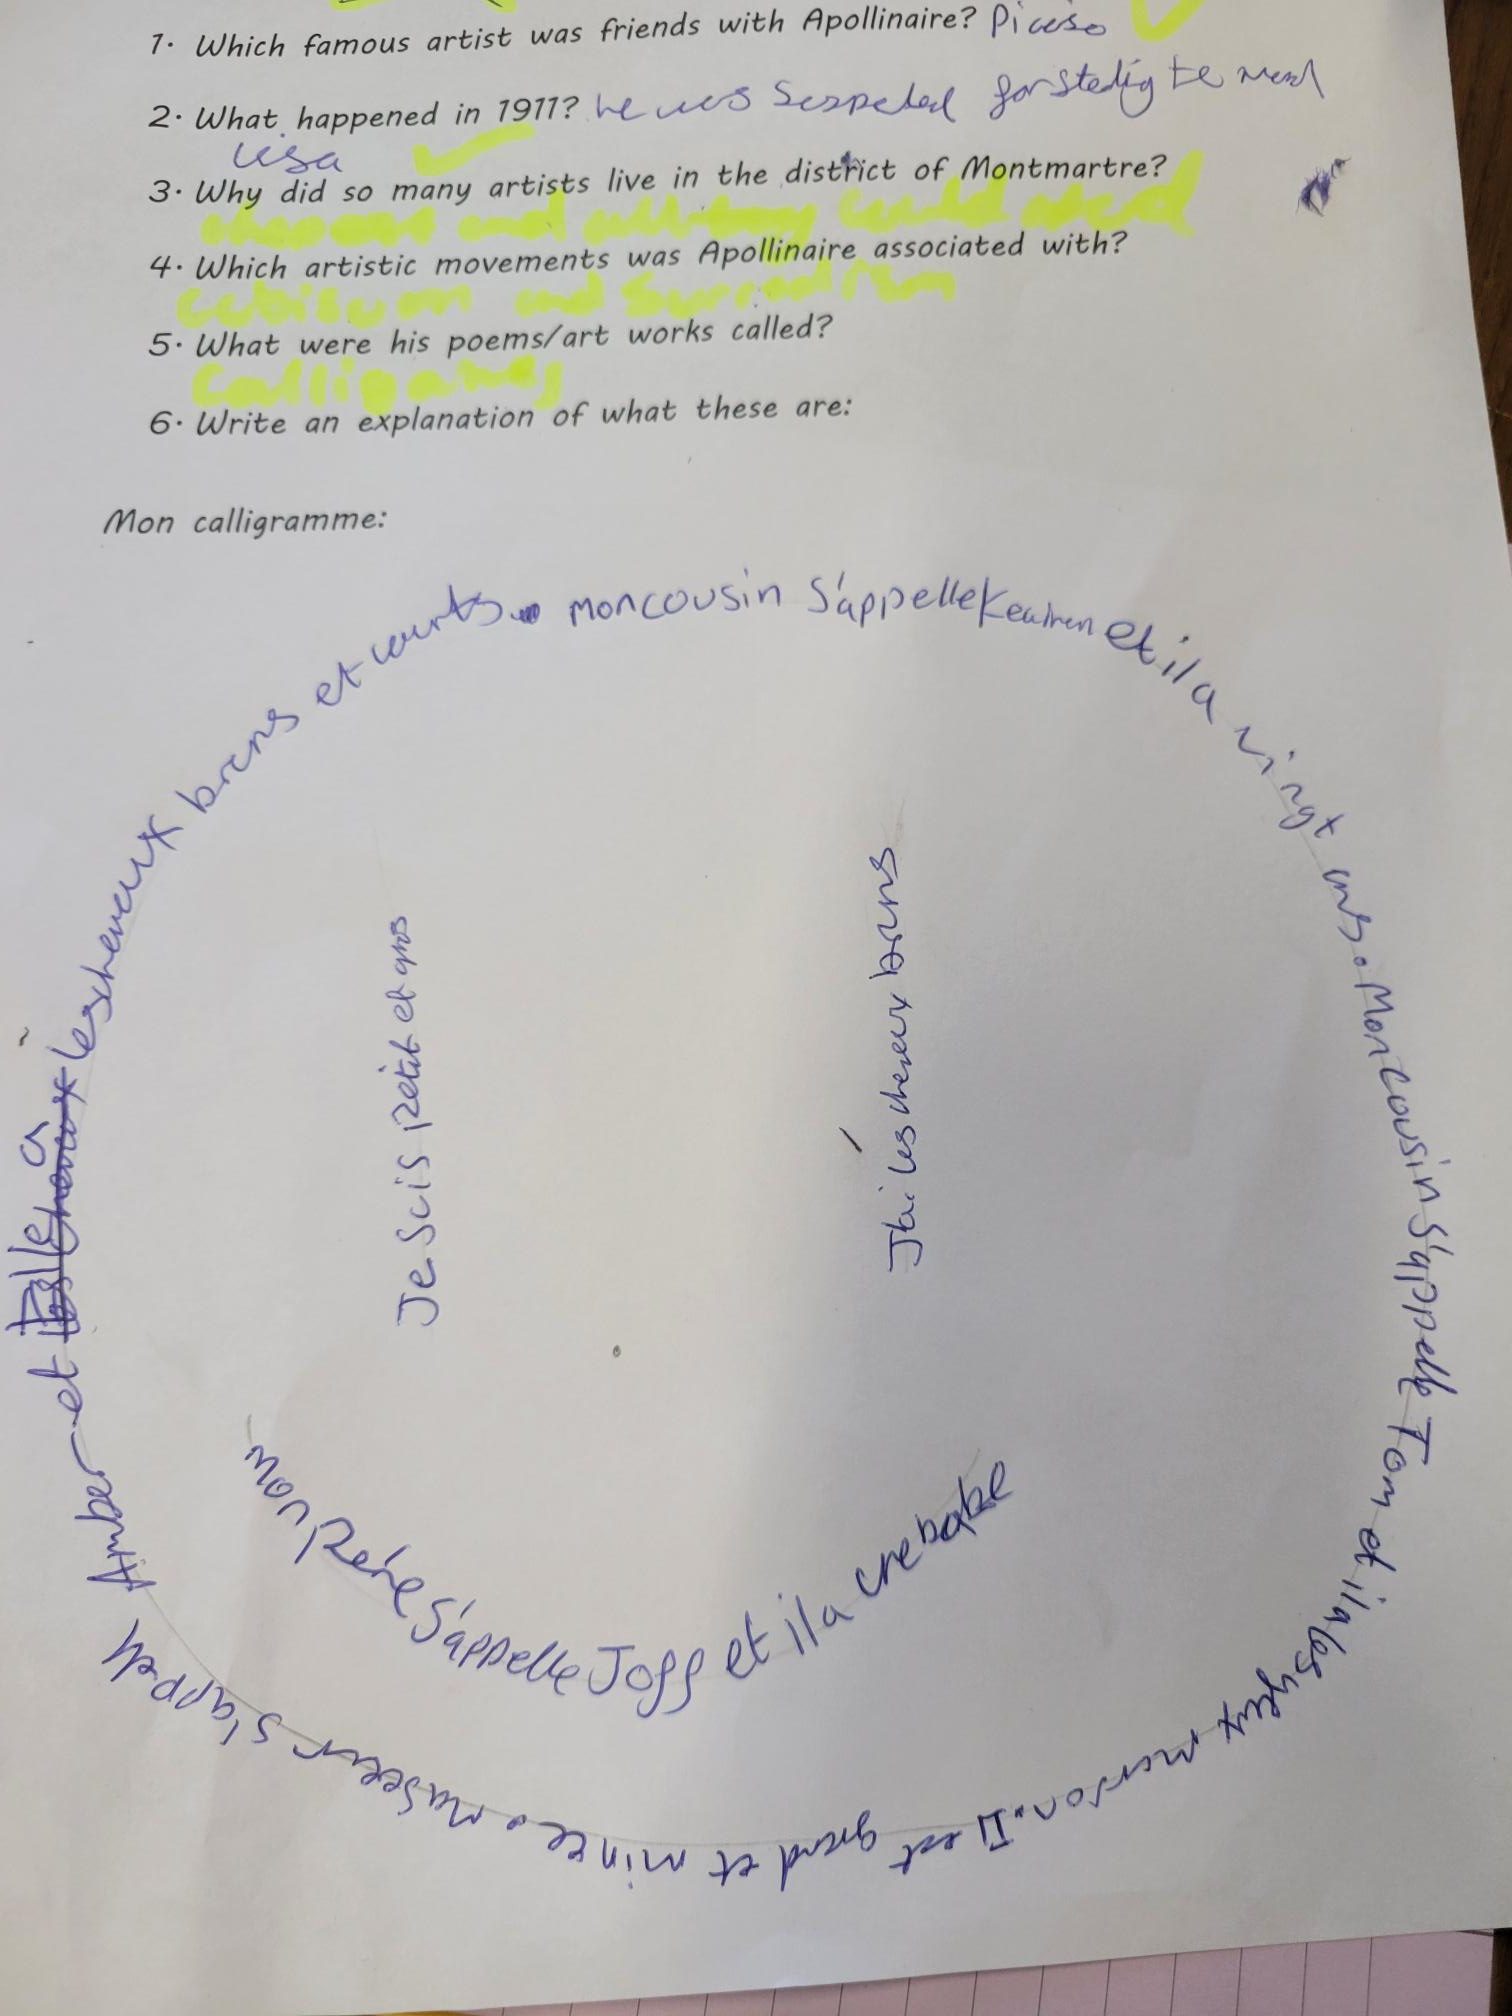 1. Which famous artist was friends with Apollinaire? Picaso
2. What happened in 1911? he was Suspeted for steling te mona
lisa
3. Why did so many artists live in the district of Montmartre?
cheapest and all they could aford
4. Which artistic movements was Apollinaire associated with?
Cubisum and Surrealism
5. What were his poems/art works called?
Calligrames
6. Write an explanation of what these are:
Mon calligramme:
mon cousin s'appelle et il a vingt ans. Mon cousin s'appelle Tom et il a les yeux marron. Il est grand et mince. ma soeur s'appell Amber et elle a les cheveux bruns et courts.
Je suis petit et gros
J'ai les cheveux bruns
mon père s'appelle Joff et il a une barbe